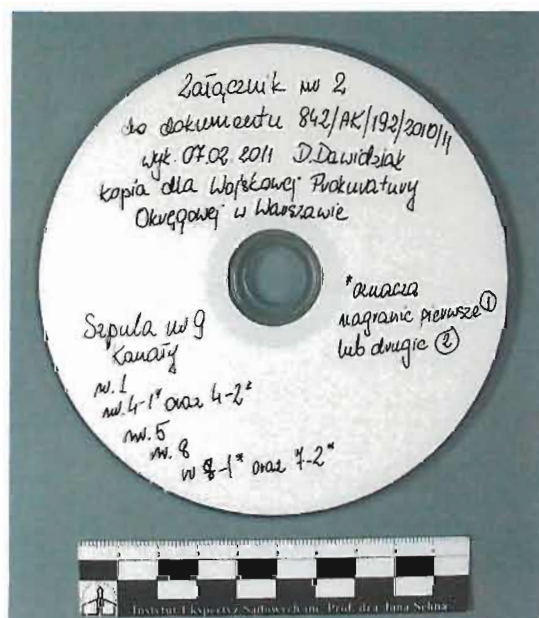 Załącznik nr 2
do dokumentu 842/AK/192/2010/11
wyk. 07.02.2011 D.Dawidziak
kopia dla Wojskowej Prokuratury
Okręgowej w Warszawie
*oznacza
nagranie pierwsze ①
lub drugie ②
Szpula nr 9
Kanały
nr. 1
nr. 4-1* oraz 4-2*
nr. 5
nr. 8
-1* oraz 7-2*
Instytut Ekspertyz Sądowych im. Prof. dra Jana Sehna